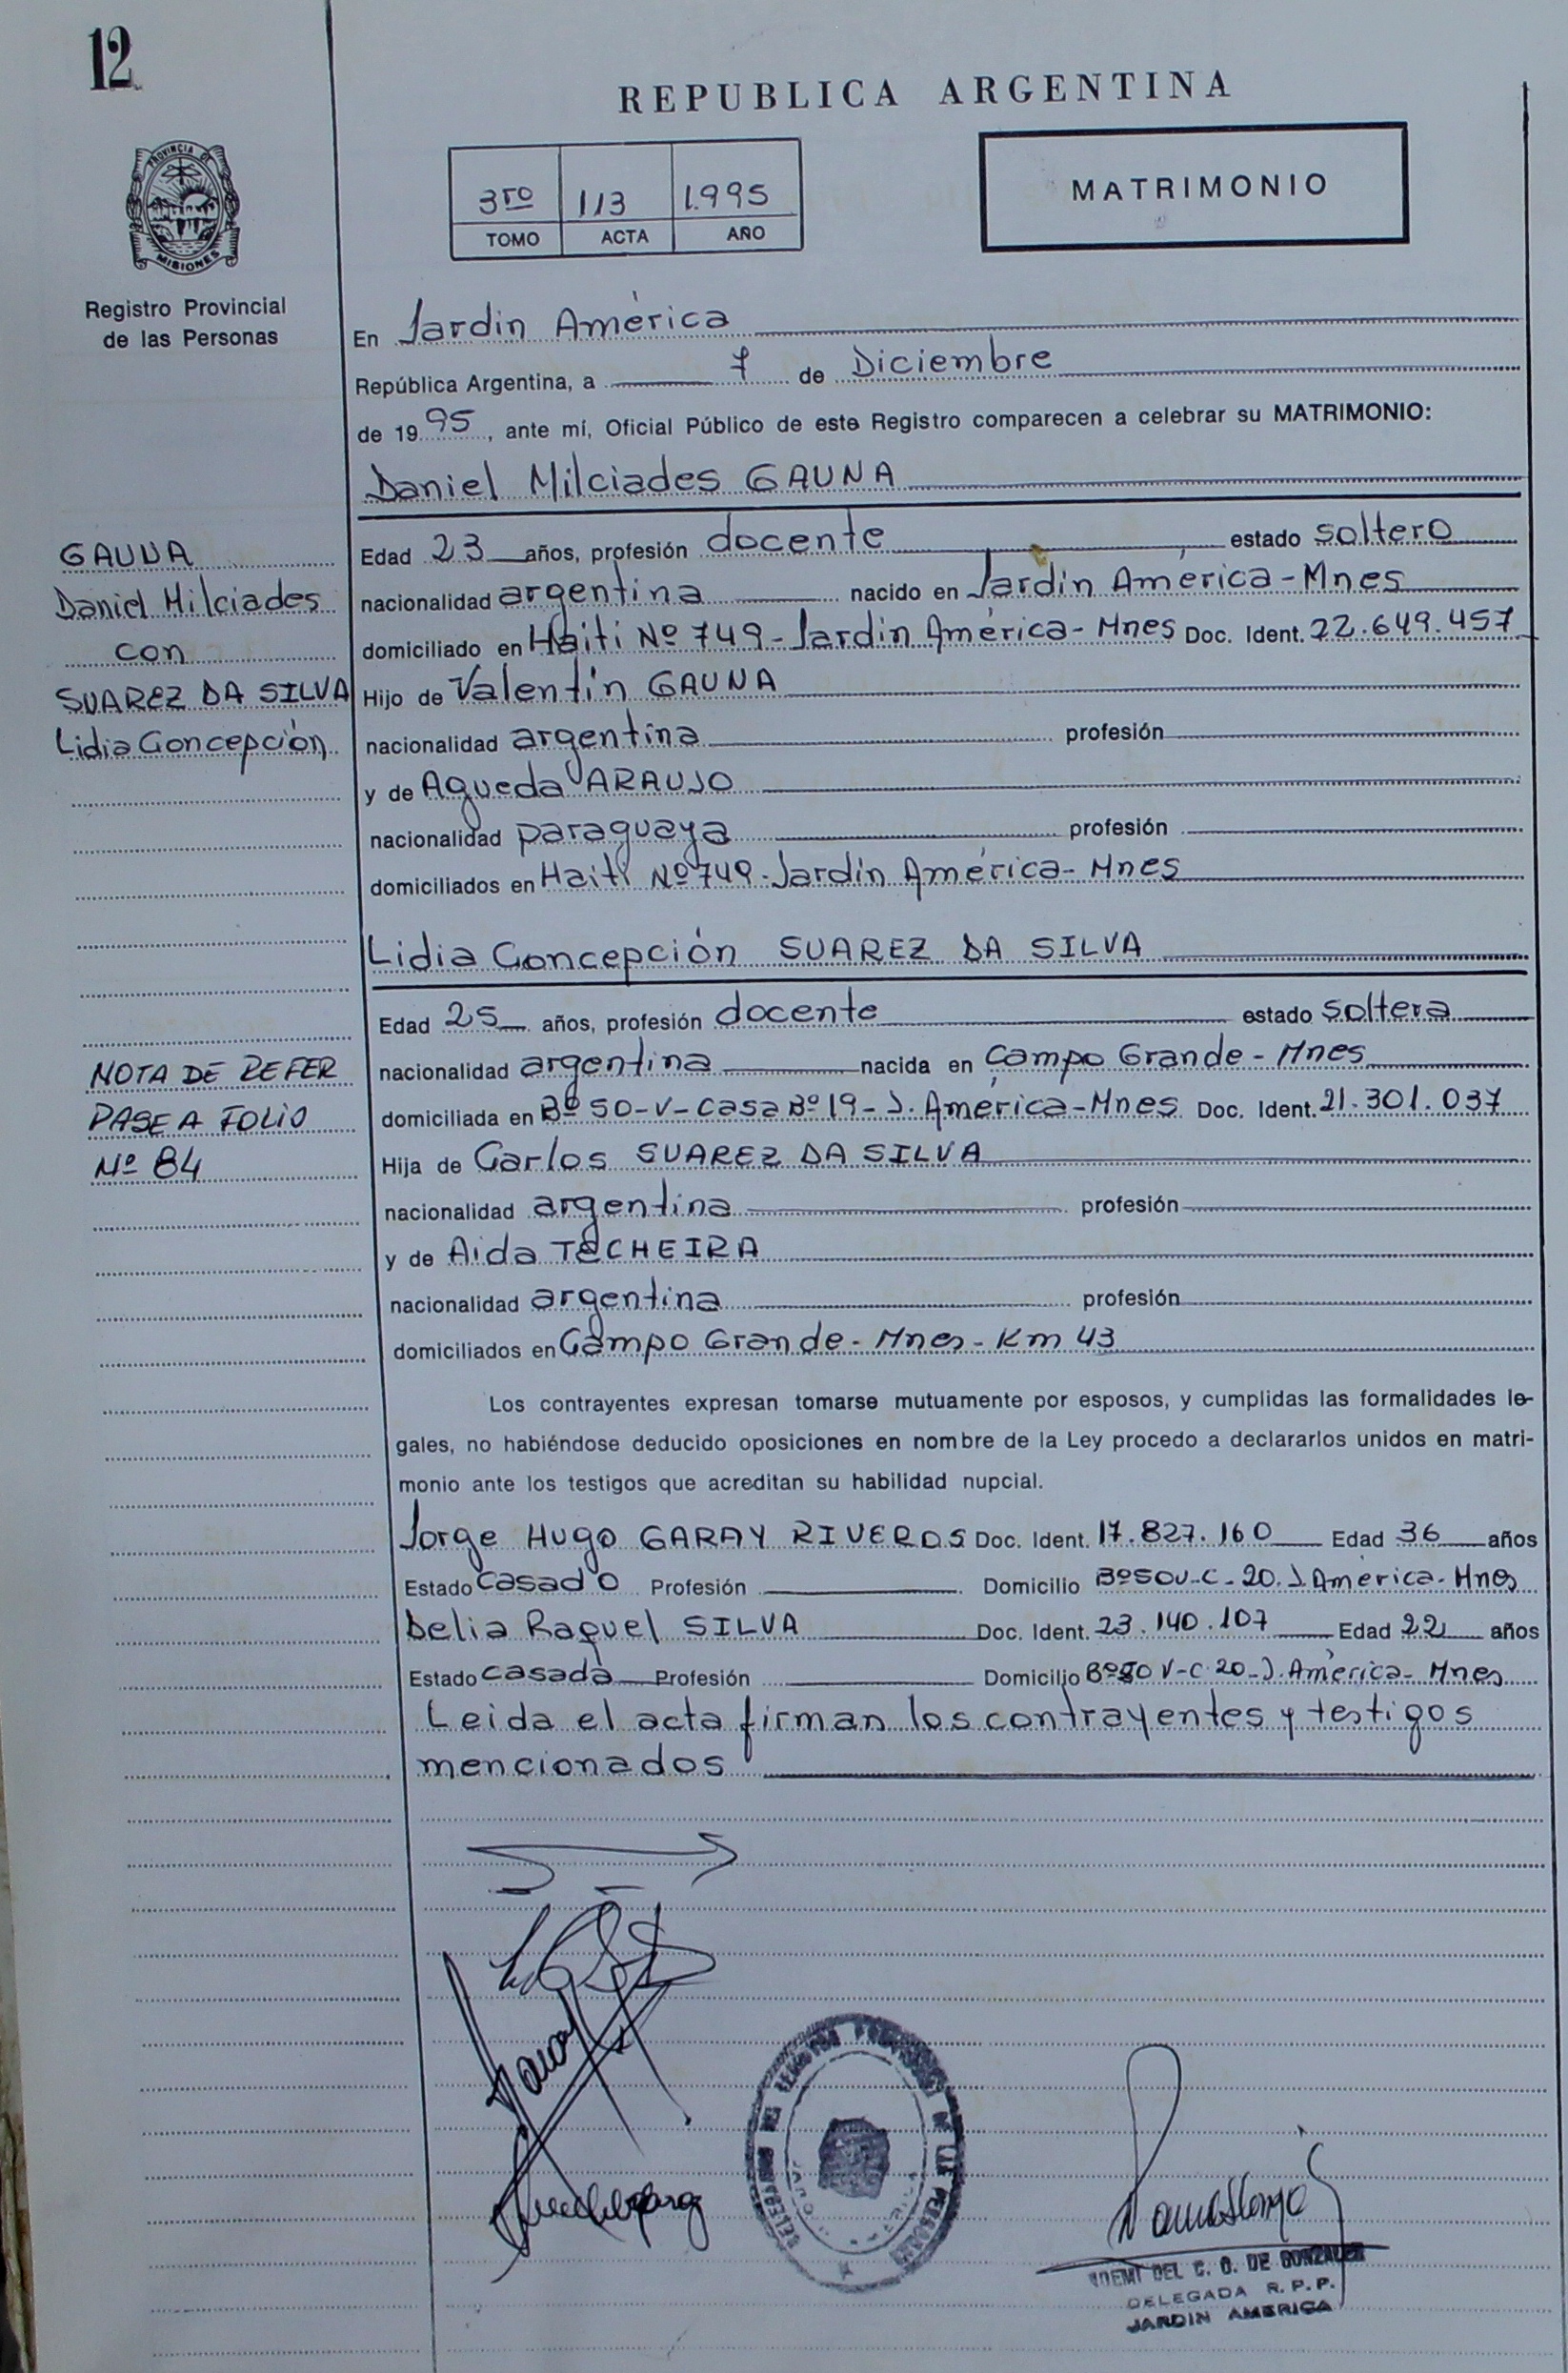 12
REPUBLICA ARGENTINA
PROVINCIA DE
MISIONES
Registro Provincial
de las Personas
3ro 113 1.995
TOMO ACTA AÑO
MATRIMONIO
En Jardin América
República Argentina, a 7 de Diciembre
de 1995, ante mí, Oficial Público de este Registro comparecen a celebrar su MATRIMONIO:
Daniel Milciades GAUNA
GAUNA
Daniel Milciades
con
SUAREZ DA SILVA
Lidia Concepción
Edad 23 años, profesión docente estado soltero
nacionalidad argentina nacido en Jardín América-Mnes
domiciliado en Haiti Nº 749-Jardín América-Mnes Doc. Ident. 22.649.457
Hijo de Valentín GAUNA
nacionalidad argentina profesión
y de Agueda ARAUJO
nacionalidad paraguaya profesión
domiciliados en Haiti Nº 749-Jardín América-Mnes
Lidia Concepción SUAREZ DA SILVA
Edad 25 años, profesión docente estado soltera
nacionalidad argentina nacida en Campo Grande-Mnes
domiciliada en Bº 50-V-Casa Bº 19-J. América-Mnes Doc. Ident. 21.301.037
Hija de Carlos SUAREZ DA SILVA
nacionalidad argentina profesión
y de Aida TECHEIRA
nacionalidad argentina profesión
domiciliados en Campo Grande-Mnes-Km 43
NOTA DE REFER
PASE A FOLIO
Nº 84
Los contrayentes expresan tomarse mutuamente por esposos, y cumplidas las formalidades le-
gales, no habiéndose deducido oposiciones en nombre de la Ley procedo a declararlos unidos en matri-
monio ante los testigos que acreditan su habilidad nupcial.
Jorge Hugo GARAY RIVEROS Doc. Ident. 17.827.160 Edad 36 años
Estado casado Profesión Domicilio Bº50V-C-20.J.América-Mnes
Delia Raquel SILVA Doc. Ident. 23.140.107 Edad 22 años
Estado casada Profesión Domicilio Bº50 V-C.20-J.América-Mnes
Leida el acta firman los contrayentes y testigos
mencionados
NOEMI DEL C. O. DE GONZALEZ
DELEGADA R.P.P.
JARDIN AMERICA